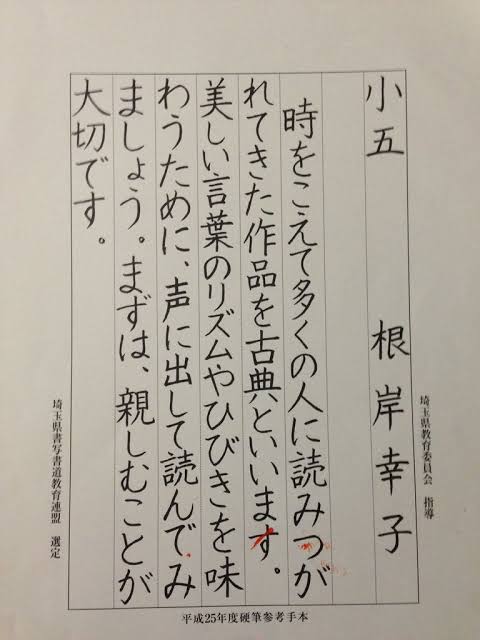 小五 根岸幸子
時をこえて多くの人に読みつが
れてきた作品を古典といいます。
美しい言葉のリズムやひびきを味
わうために、声に出して読んでみ
ましょう。まずは、親しむことが
大切です。
埼玉県教育委員会 指導
埼玉県書写書道教育連盟 選定
平成25年度硬筆参考手本